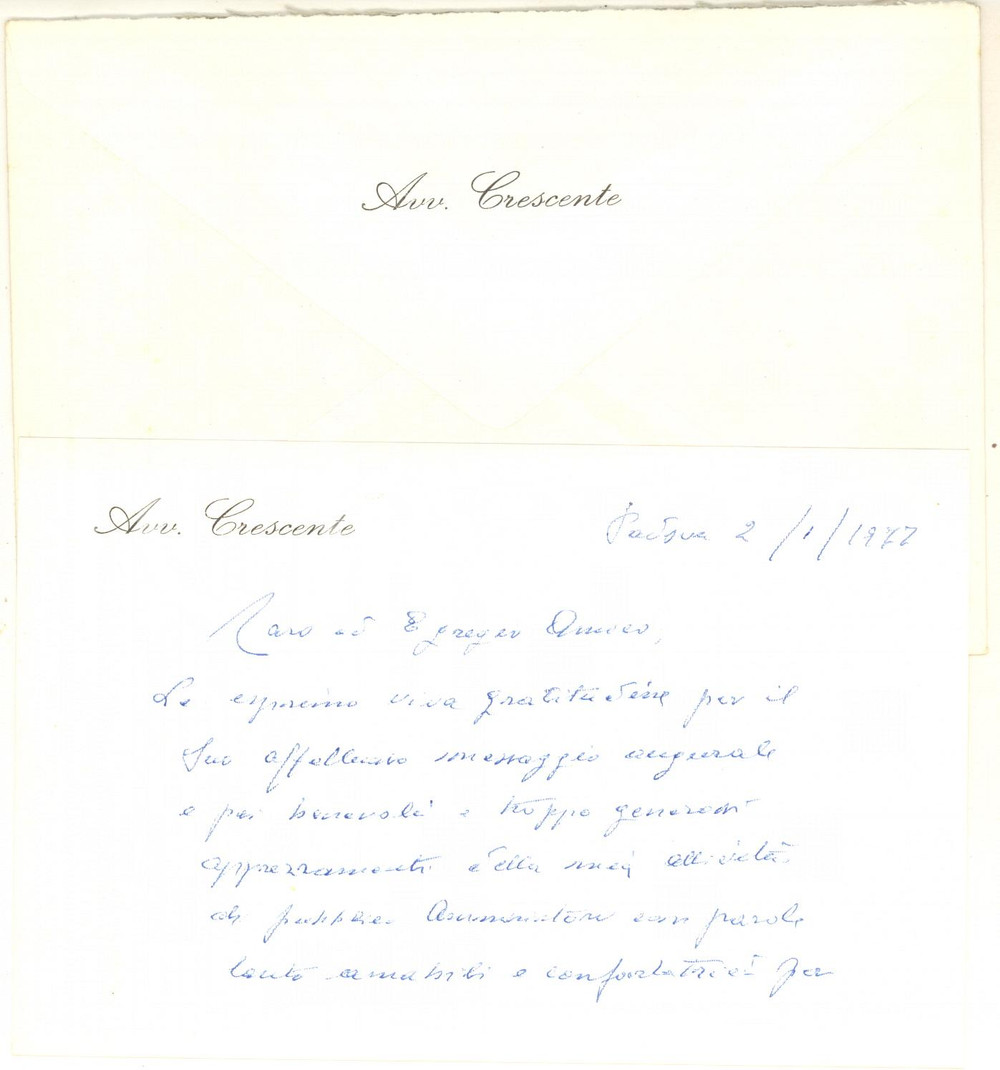 Avv. Crescente
Avv. Crescente
Padova 2/1/1977
Caro ed Egregio Amico,
Le esprimo viva gratitudine per il
Suo affettuoso messaggio augurale
e per benevoli e troppo generosi
apprezzamenti della mia attività
di pubblico Amministratore con parole
tanto amabili e confortatrici per